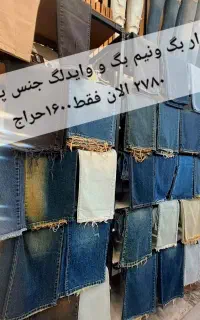 ار بگ ونیم بگ و وایدلگ جنس پ
۲۷۸۰ الان فقط۱۶۰۰حراج